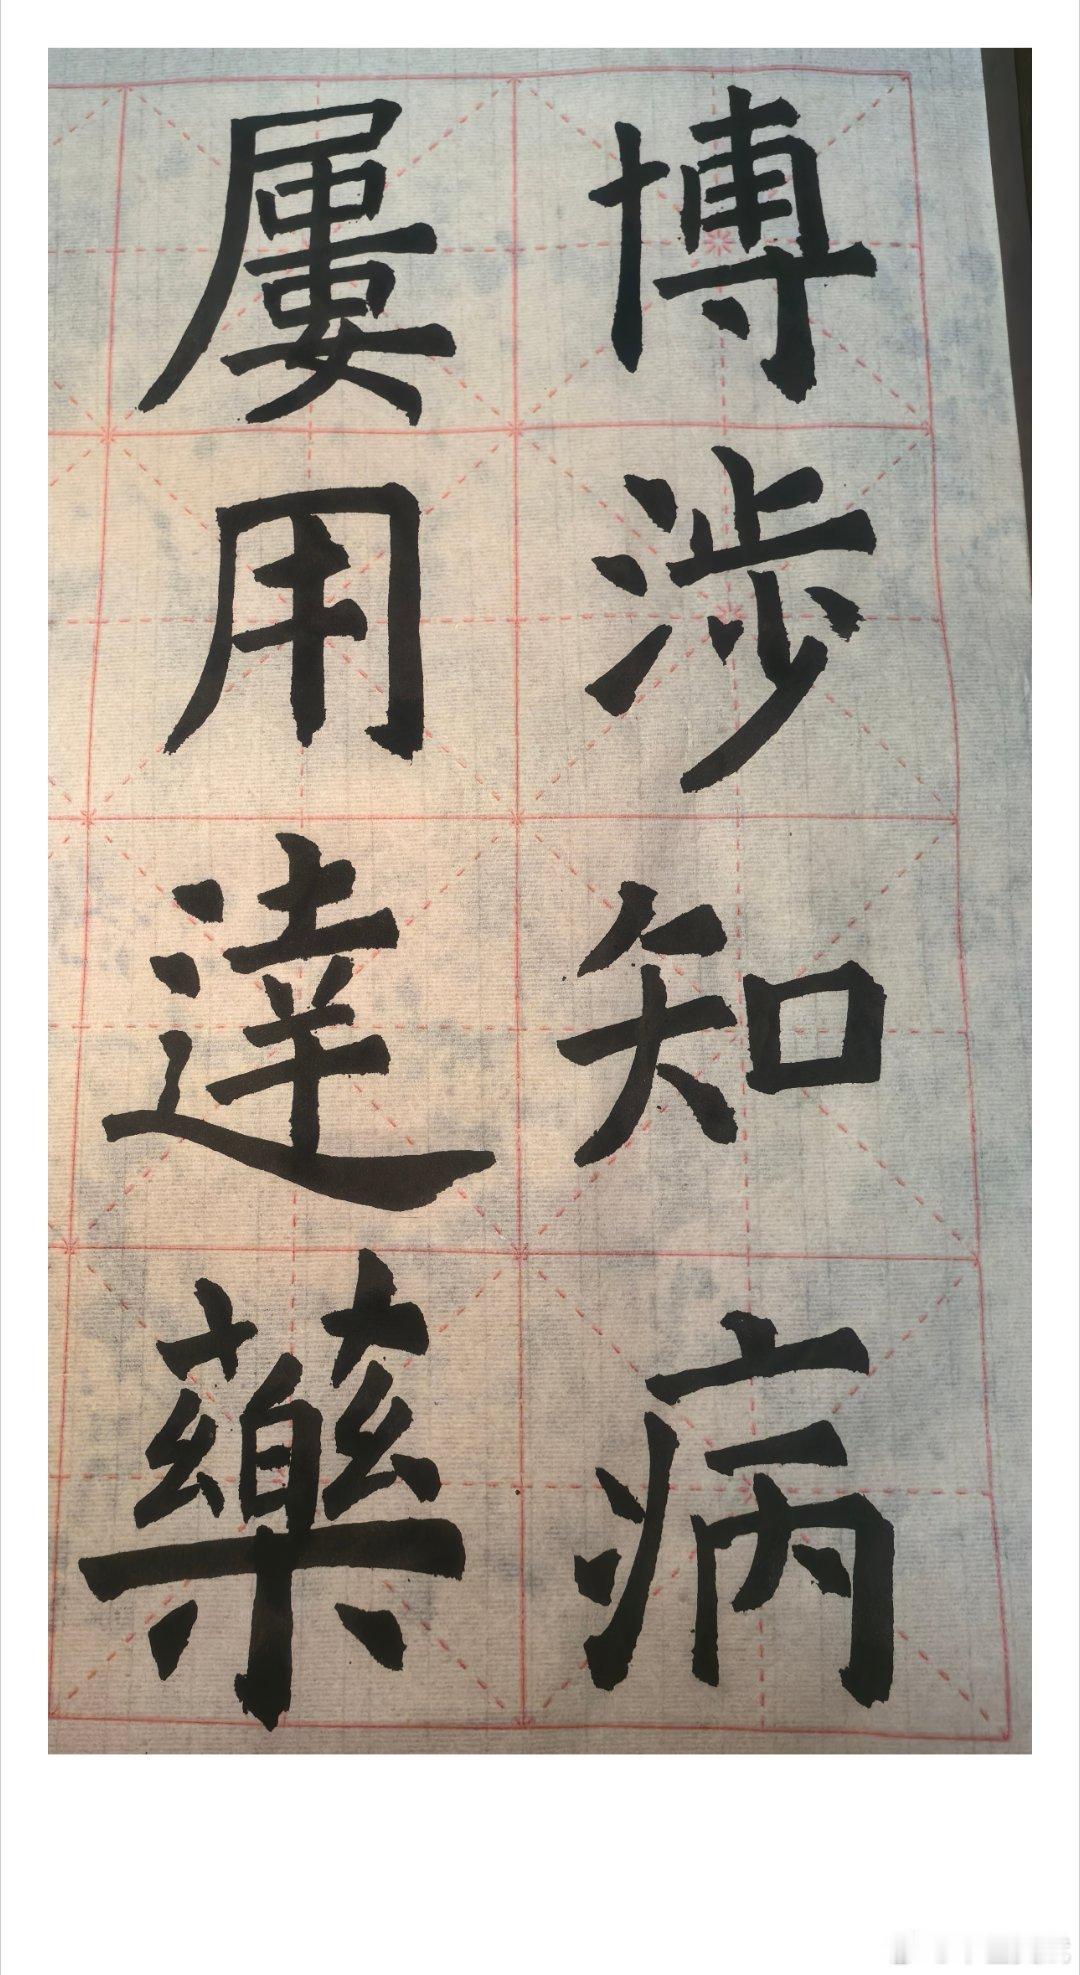 博涉知病
屢用達藥